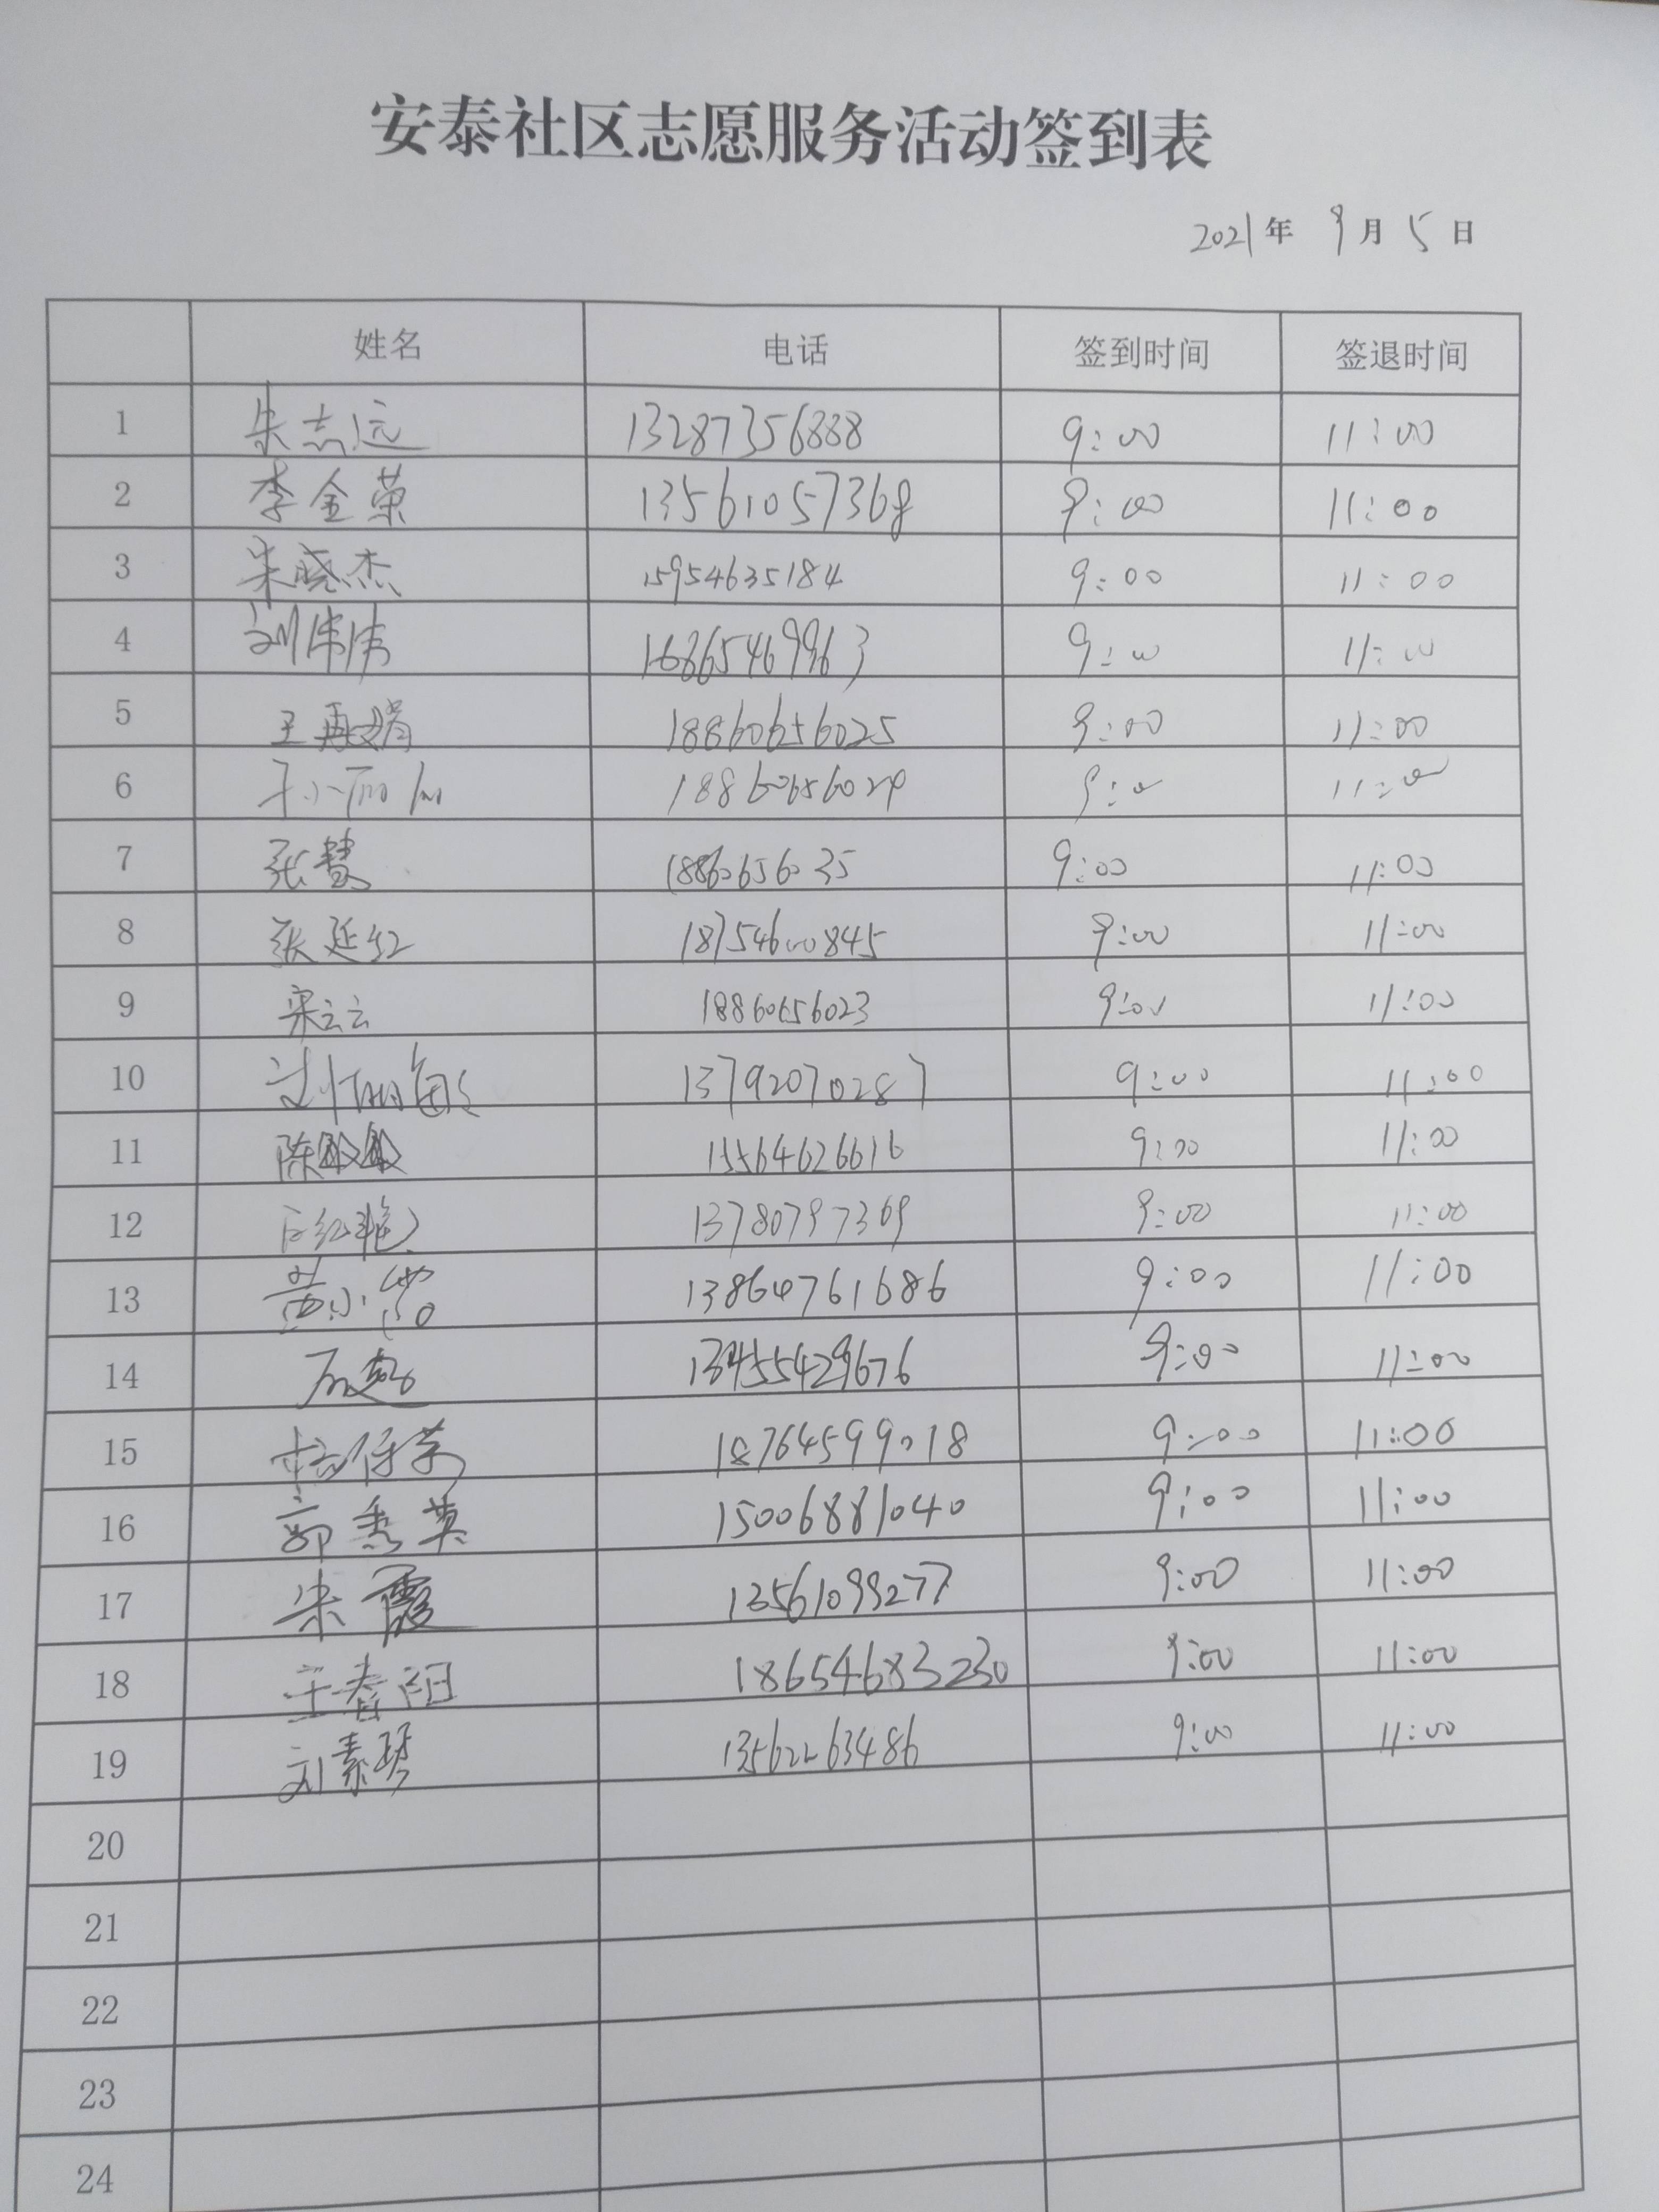 安泰社区志愿服务活动签到表
2021年 9月5日
姓名 电话 签到时间 签退时间
1 朱志远 13287356888 9:00 11:00
2 李金荣 13561057368 9:00 11:00
3 朱晓杰 15954635184 9:00 11:00
4 刘伟伟 16865469963 9:00 11:00
5 王再娟 18860656025 9:00 11:00
6 18860656029 9:00 11:00
7 张慧 18860656035 9:00 11:00
8 张延红 18754600845 9:00 11:00
9 宋云云 18860656023 9:00 11:00
10 13792070287 9:00 11:00
11 陈敏敏 15564626616 9:00 11:00
12 13780797369 9:00 11:00
13 黄小 13864761686 9:00 11:00
14 13455429676 9:00 11:00
15 18764599018 9:00 11:00
16 郭秀英 15006881040 9:00 11:00
17 朱霞 13561099277 9:00 11:00
18 王春阳 18654683230 9:00 11:00
19 刘素琴 13562263486 9:00 11:00
20
21
22
23
24